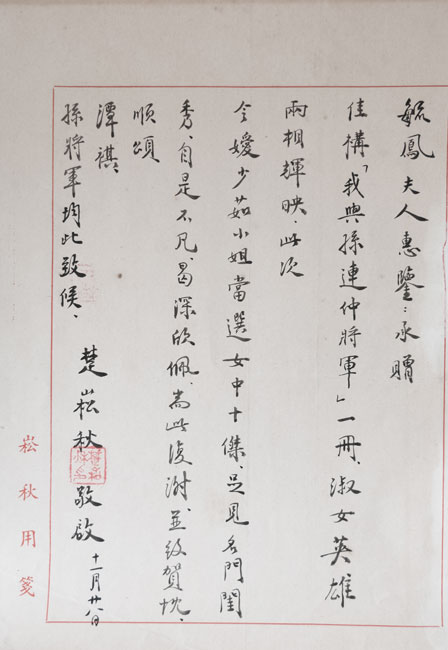 毓鳳夫人惠鑒：承贈
佳構「我與孫連仲將軍」一冊、淑女英雄
兩相輝映、此次
令嬡少茹小姐當選女中十傑、足見名門閨
秀、自是不凡、曷深欣佩、耑此復謝、並致賀忱、
順頌
潭祺、
孫將軍均此致候、
楚崧秋敬啟 十一月廿八日
崧秋用箋